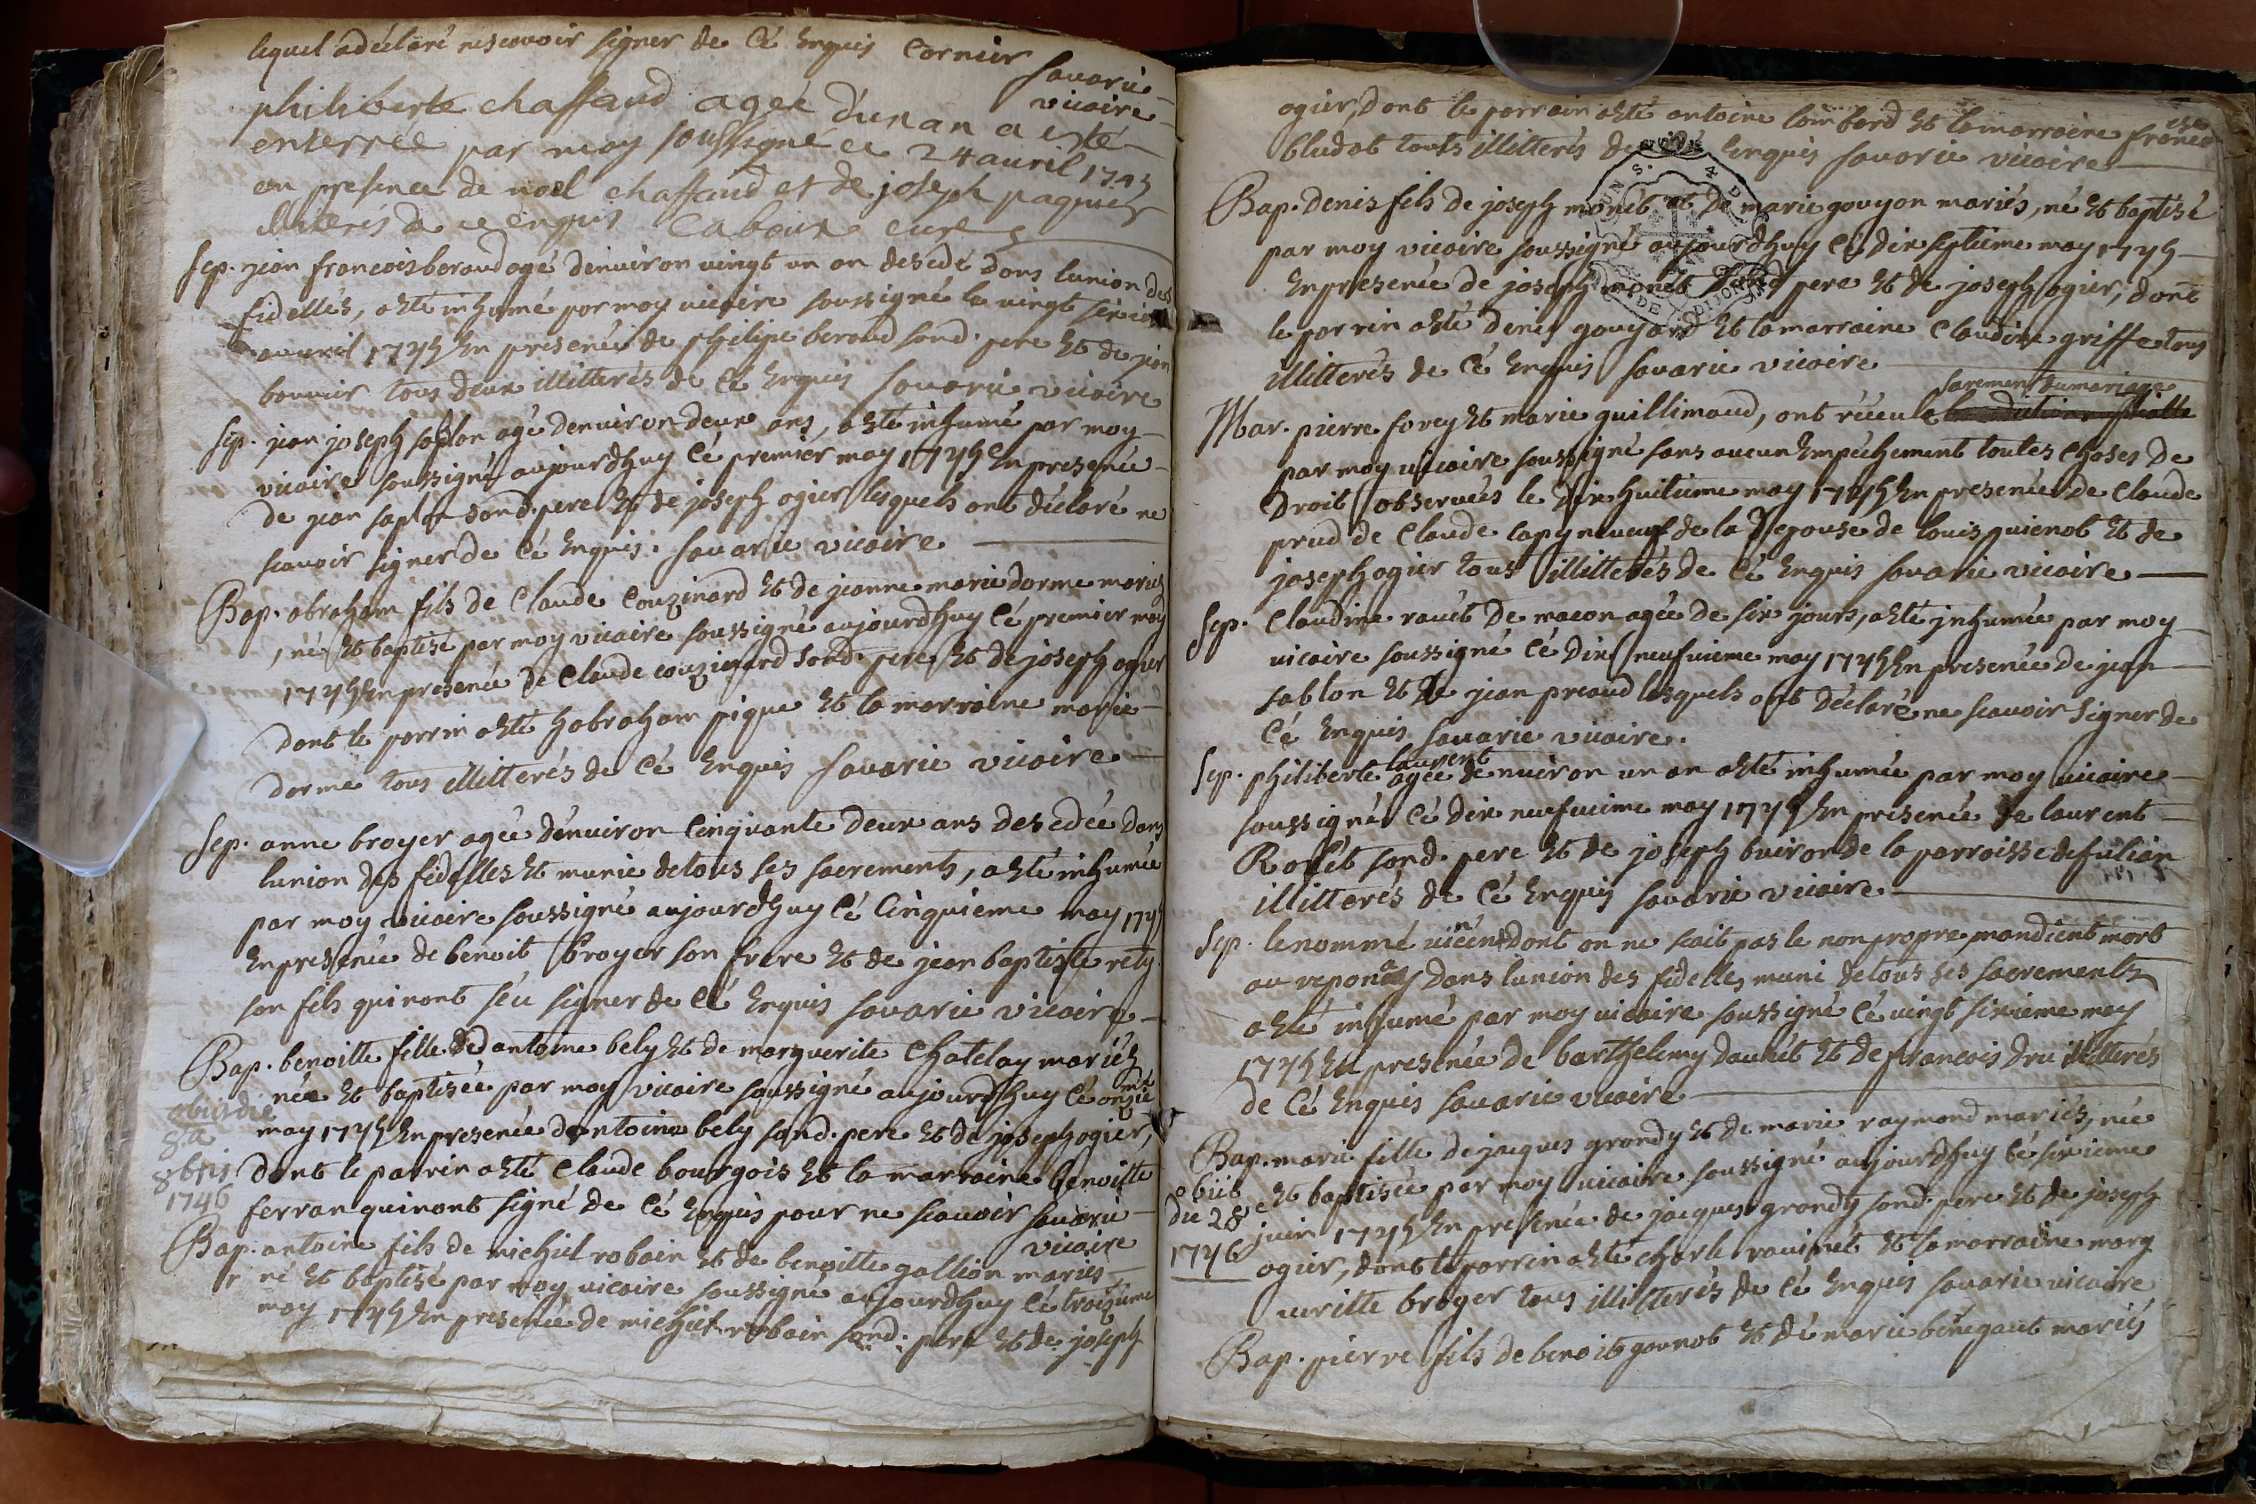 lequel adéclaré nescavoir signer de cé Enquis Cornier
Savarie
vicaire
philiberte chaffaud agée d'un an a esté
enterrée par moy soussigné ce 24 auril 1745
en presence de noel chaffaud et de joseph paquier
illiterés de ce enquis Caboux curé
Sep. jean francois beraud agé d'enuiron uingt un an decedé dans lunion des
fidelles, aEté inhumé par moy uicaire soussigné le vingt
auril 1745 En presencé de philipe beraud sond. pere Et de jean
bouuier tous deux illitterés de cé Enquis Savarie vicaire
Sep. jean joseph sablon agé denuiron deux ans, aEté inhumé par moy
vicaire soussigné aujourdhuy cé premier may 1745 Enpresencé
de jean sablon sond. pere Et de joseph ogier lesquels ont déclaré ne
scavoir signer de cé Enquis. Savarie vicaire
Bap. abraham fils de Claude Couzinard Et de jeanne marie dorme mariés
, né Et baptisé par moy vicaire soussigné aujourdhuy cé premier may
1745 Enpresencé de Claude couzinard sond. pere Et de joseph ogier
dont le parrin aEté habraham pique Et la marraine marie
dorme tous illitterés de cé Enquis Savarie vicaire
Sep. anne broyer agée d'enuiron Cinquante deux ans decedée dans
lunion des fidelles Et munie detous ses sacrements, aEté inhumée
par moy vicaire soussigné aujourdhuy cé Cinquieme may 1745
Enpresencé de benoit broyer son frere Et de jean baptiste rety
son fils quinont scu signer de cé Enquis Savarie vicaire
Bap. benoitte fille de antoine bely Et de marguerite Chatelay mariés
née Et baptisée par moy vicaire soussigné aujourdhuy cé onzie
may 1745 Enpresencé dantoine bely sond. pere Et de joseph ogier,
dont le parrin aEté Claude bourgois Et la marraine benoitte
ferran quinont signé de cé Enquis pour ne scauoir Savarie
vicaire
obiit die
8a
8bris
1746
Bap. antoine fils de michel robain Et de benoitte gallion mariés
né Et baptisé par moy uicaire soussigné aujourdhuy cé treizieme
may 1745 Enpresencé de michel robain sond. pere Et de joseph
ogier, dont le parrain aEté antoine lombard Et lamarraine
bludot touts illitterés de cé Enquis Savarie vicaire
Bap. denis fils de joseph monet Et de marie gouyon mariés, né Et baptisé
par moy vicaire soussigné aujourdhuy cé dix septieme may 1745
Enpresencé de joseph monet sond pere Et de joseph ogier, dont
le parrin aEté denis gouyard Et lamarraine Claudine griffe tous
illitterés de cé Enquis Savarie vicaire
sacrement dumariage
Mar. pierre forey Et marie guillimaud, ont receu le
par moy uicaire soussigné sans aucun Empéchement toutes choses de
Droit observées le dix huitieme may 1745 Enpresencé de Claude
prud de Claude lapy neueuf de la d epouse de louis quienot Et de
joseph ogier tous illitterés de cé Enquis Savarie vicaire
Sep. Claudine rauet De macon agée de six jours, aEté jnhumée par moy
vicaire soussigné cé dix neufuieme may 1745 Enpresencé de jean
sablon Et de jean preaud lesquels ont déclaré ne scavoir signer de
cé Enquis Savarie vicaire.
laurent
Sep. philiberte agée denuiron un an aEté inhumée par moy uicaire
soussigné cé dix neufuieme may 1745 Enpresencé de laurent
Rolet sond. pere Et de joseph buiron de la parroisse de
illitterés de cé Enquis Savarie vicaire
Sep. lenommé uicent dont on ne scait pas le nonpropre mandient mort
au dans lunion des fidelles muni detous ses sacrements
aEté inhumé par moy uicaire soussigné cé uingt sixieme may
1745 En presencé de barthelemy daudet Et de francois dru illitterés
de cé Enquis Savarie vicaire
Bap. marie fille de jacques grandy Et de marie raymond mariés, née
Et baptisée par moy uicaire soussigné aujourdhuy cé sixieme
juin 1745 Enpresencé de jacques grandy sond. pere Et de joseph
ogier, dont le parrin aEté charle rauinet Et lamarraine marg
ueritte broyer tous illitterés de cé Enquis Savarie vicaire
obiit
du 28
1746
Bap. pierre fils de benoit gounot Et de marie bénegaut mariés